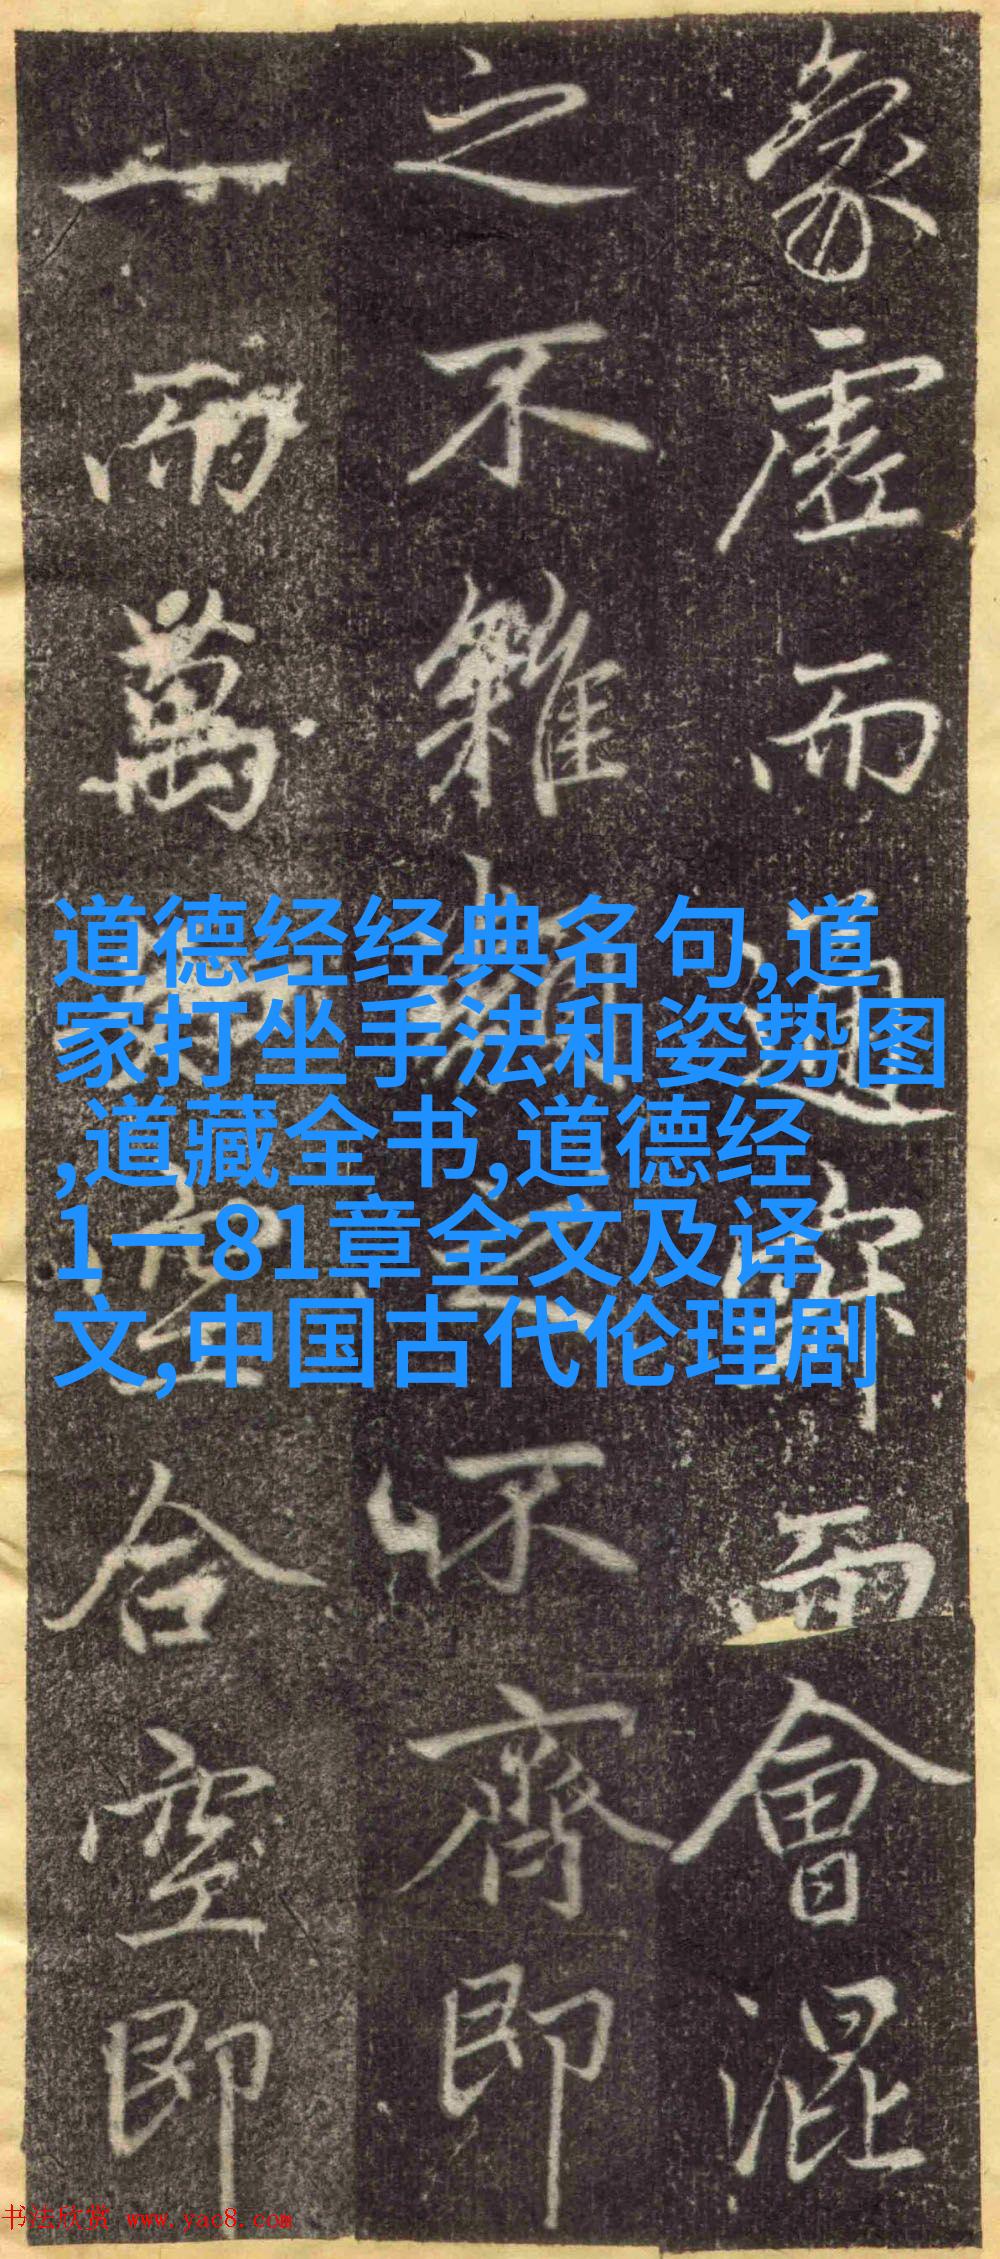 象虛而而會混
之不雜之不齊即
一而萬合空即
道德经经典名句,道
家打坐手法和姿势图
,道藏全书,道德经
1一81章全文及译
文,中国古代伦理剧
书法欣赏 www.yac8.com